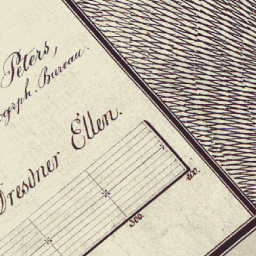 Peters,
ogrph. Bureau.
Dresdner Ellen.
500.
600.